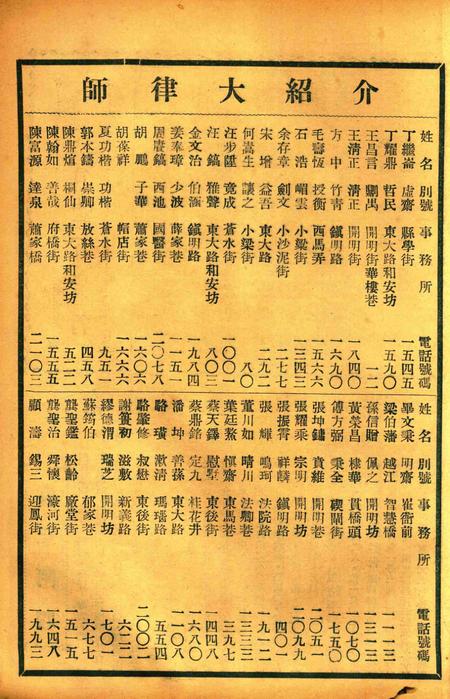 介紹大律師
姓名 別號 事務所 電話號碼
丁繼崙 虛齋 縣學街 一五四五
丁耀鼎 哲民 東大路和安坊 一五九〇
王昌言 開明街華樓巷 一二
王清正 清正 開明街 一八四〇
方中 竹青 鎮明路 一六九〇
毛壽恆 授衡 西馬弄 一五六六
石浩 嵋雲 小梁街 一三四三
余存章 劍文 小沙泥街 二七七
宋增 益吾 東大路 二九二
何嵩生 讓之 小梁街 八〇
汪步陞 竟成 蒼水街 一〇〇一
汪鎬 雅聲 東大路和安坊 八〇三
金文治 伯涵 鎮明路 一九八四
姜奉璋 少波 薛家巷 一一五一
周賡鎬 西池 國醫街 二〇七八
胡鵬 子華 蕭家巷 一六〇六
胡葆祥 帽店街 一六六六
夏功楷 功楷 蒼水街 九五一
郭本鑄 崇卿 放絲巷 四五八
陳鼎煊 桐仙 東大路和安坊 五二二
陳翰如 善哉 府橋街 一五五五
陳富源 達泉 蕭家橋 二一〇三
姓名 別號 事務所 電話號碼
畢文秉 明齋 崔衙前 一一一三
梁伯藩 越江 智慧橋 一三一三
孫信贈 佩之 開明坊 一三一三
黃榮昌 棣華 貫橋頭 一〇七〇
傅方弼 秉全 碶閘街 一七五〇
張坤鏞 賁維 開明巷 二〇五一
張耀乘 宗明 開明坊 二〇九九
張振霄 祥麟 鎮明路 四〇一
張輝 鳴珂 法院路 一九一二
董川如 晴川 法卿巷 一三三三
葉廷鰲 愼齋 東馬巷 三九七
蔡天鐸 慰墅 東後街 一四四八
蔡鼎銘 定九 桂花井 一六八〇
潘坤 善孫 東大路 一一〇八
駱璜 漱清 瑪瑙路 五五四
駱肇修 叔懋 東後街 二〇〇二
謝篁初 滋敷 新義路 六二二
繆德渭 瑞芝 開明坊 一七〇一
蘇筠伯 郁家巷 六七七
龔聖鑑 松齡 廠堂街 一五一五
龔聖治 舜懷 濠河街 一六四八
顧濤 錫三 迎鳳街 一九九三